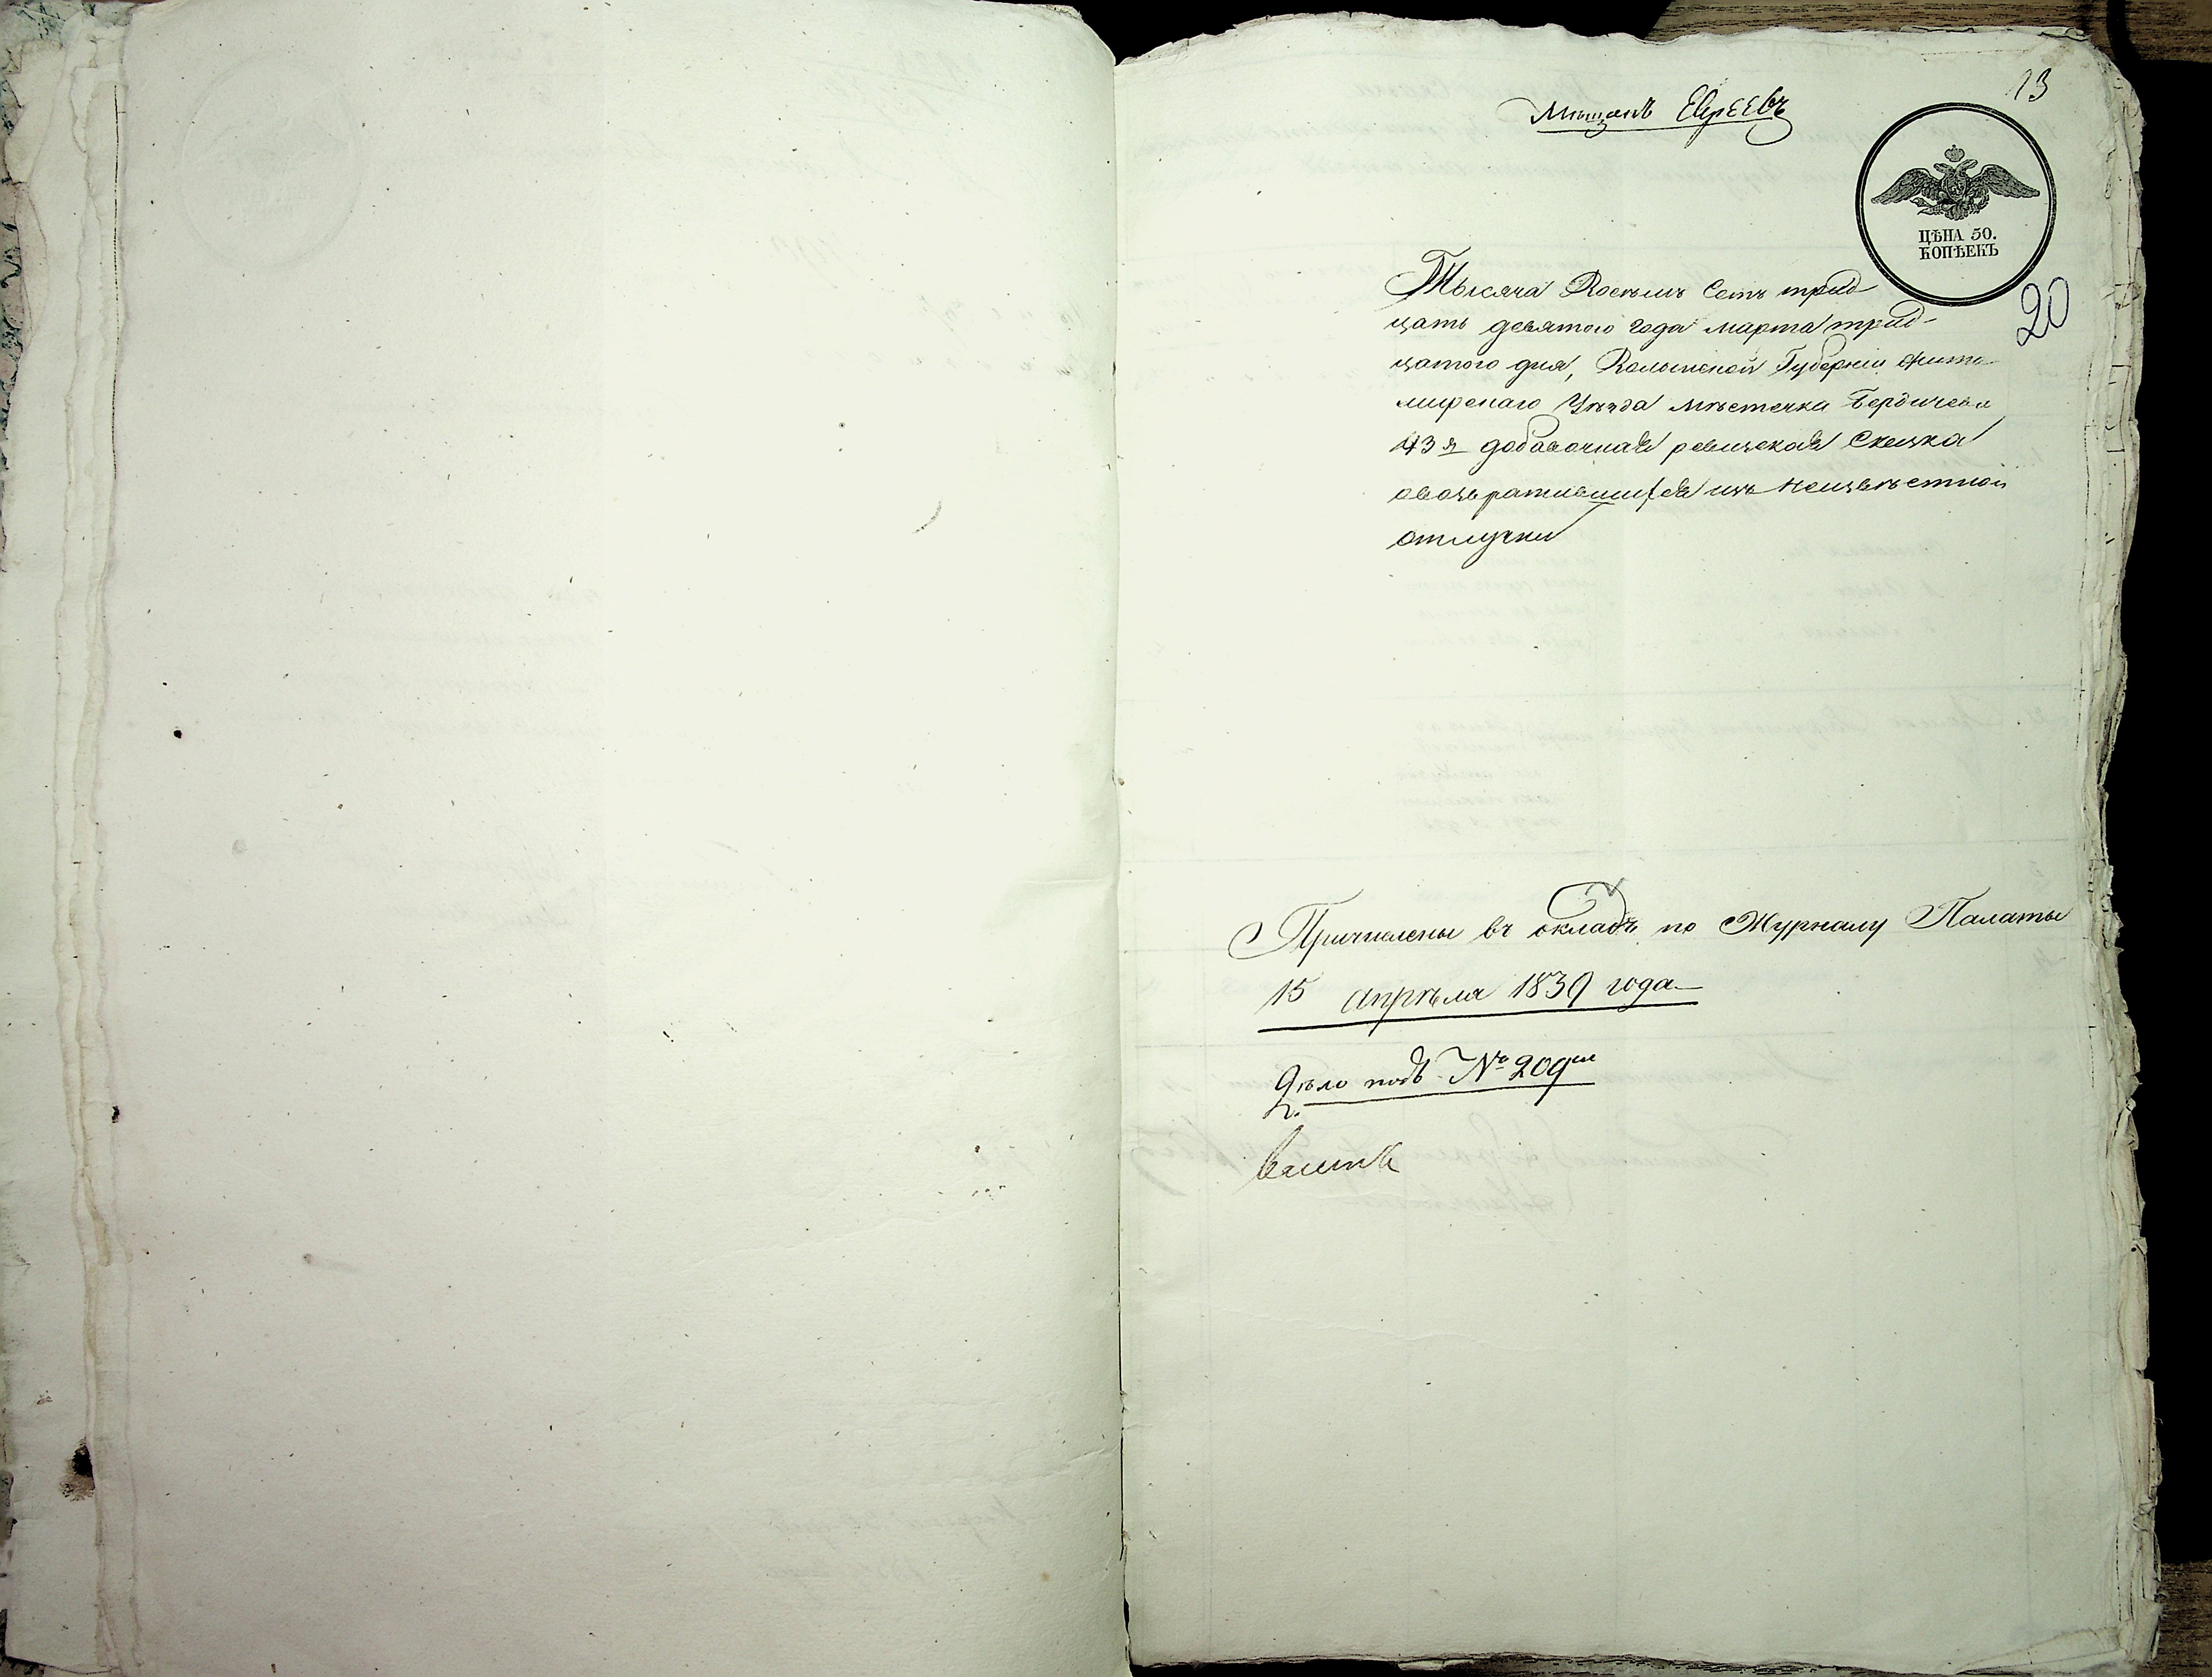 13
Мѣщанъ Евреевъ
ЦѢНА 50.
КОПѢЕКЪ
20
Тысяча Восемъ Сотъ трид
цать девятого года марта трид-
цатого дня, Волынской Губерніи Жито
мирскаго Уѣзда мѣстечка Бердичева
43я добавочная ревизская Сказка
овозвратившихся изъ неизвѣстной
отлучки
Причислены въ окладъ по Журналу Палаты
15 апрѣля 1839 года
Дѣло подъ №